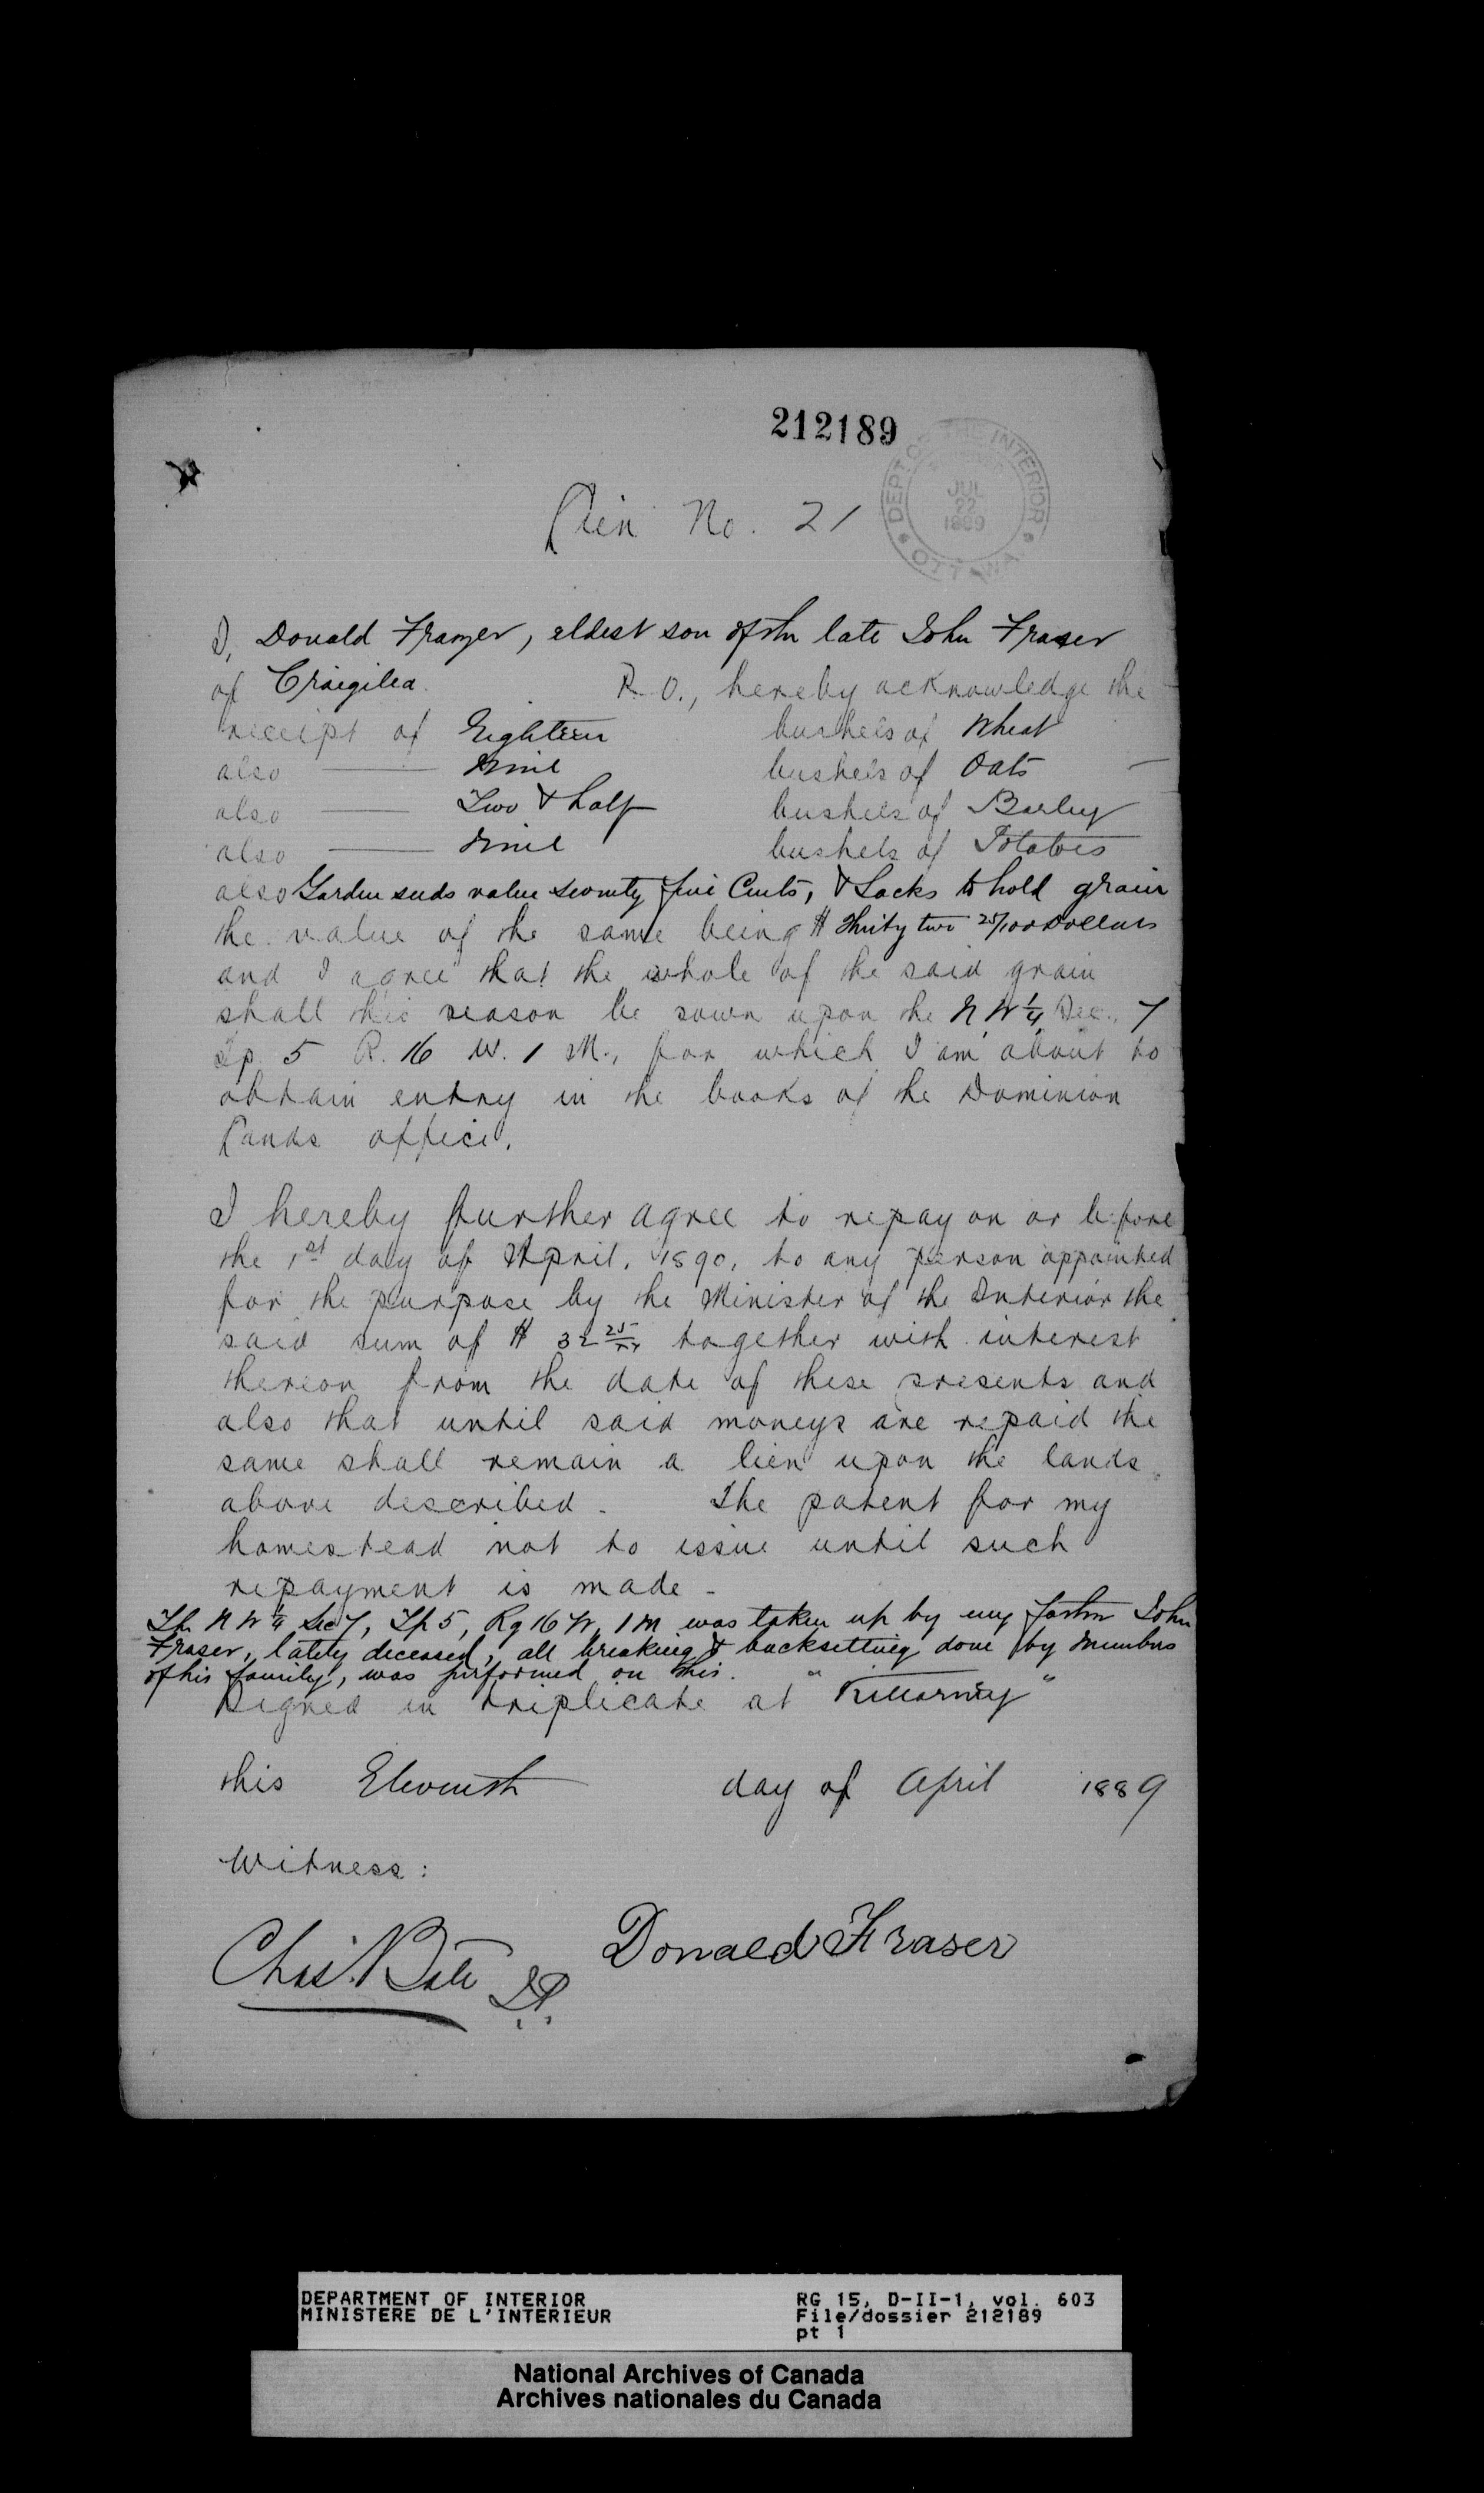 212189
DEPT OF THE INTERIOR
JUL
22
1889
OTTAWA
Lien No. 21
I, Donald Frazer, eldest son of the late John Fraser
of Craigilea P.O., hereby acknowledge the
receipt of Eighteen bushels of Wheat
also Nine bushels of Oats
also Two & half bushels of Barley
also Nine bushels of Potatoes
also Garden seeds value seventy five Cents, & Sacks to hold grain
the value of the same being $ Thirty two 25/100 Dollars
and I agree that the whole of the said grain
shall this season be sown upon the N.W 1/4 Sec. 7
Tp. 5 R. 16 W. 1 M., for which I am about to
obtain entry in the books of the Dominion
Lands office.
I hereby further agree to repay on or before
the 1st day of April, 1890, to any person appointed
for the purpose by the Minister of the Interior the
said sum of $ 32 25/xx together with interest
thereon from the date of these presents and
also that until said moneys are repaid the
same shall remain a lien upon the lands
above described. The patent for my
homestead not to issue until such
repayment is made -
The N W 1/4 Sec 7, Tp 5, Rg 16 W, 1 M was taken up by my father John
Fraser, lately deceased, all breaking & backsetting done by members
of his family, was performed on this.
Signed in triplicate at "Killarney"
this Eleventh day of April 1889
Witness:
Chas. Bate
Donald Fraser
DEPARTMENT OF INTERIOR
MINISTERE DE L'INTERIEUR
RG 15, D-II-1, vol. 603
File/dossier 212189
pt 1
National Archives of Canada
Archives nationales du Canada